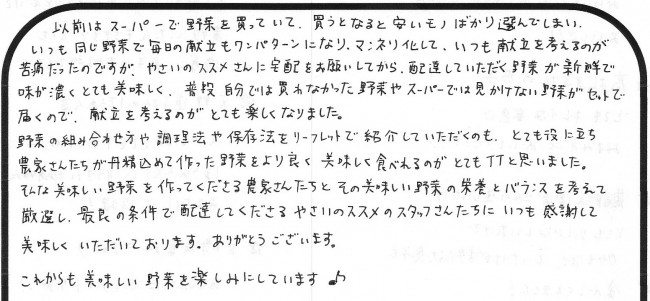 以前はスーパーで野菜を買っていて、買うとなると安いモノばかり選んでしまい、
いつも同じ野菜で毎日の献立もワンパターンになり、マンネリ化して、いつも献立を考えるのが
苦痛だったのですが、やさいのススメさんに宅配をお願いしてから、配達していただく野菜が新鮮で
味が濃くとても美味しく、普段自分では買わなかった野菜やスーパーでは見かけない野菜がセットで
届くので、献立を考えるのがとても楽しくなりました。
野菜の組み合わせ方や調理法や保存法をリーフレットで紹介していただくのも、とても役に立ち
農家さんたちが丹精込めて作った野菜をより良く美味しく食べれるのがとてもイイと思いました。
そんな美味しい野菜を作ってくださる農家さんたちとその美味しい野菜の栄養とバランスを考えて
厳選し、最良の条件で配達してくださるやさいのススメのスタッフさんたちにいつも感謝して
美味しくいただいております。ありがとうございます。
これからも美味しい野菜を楽しみにしています♪